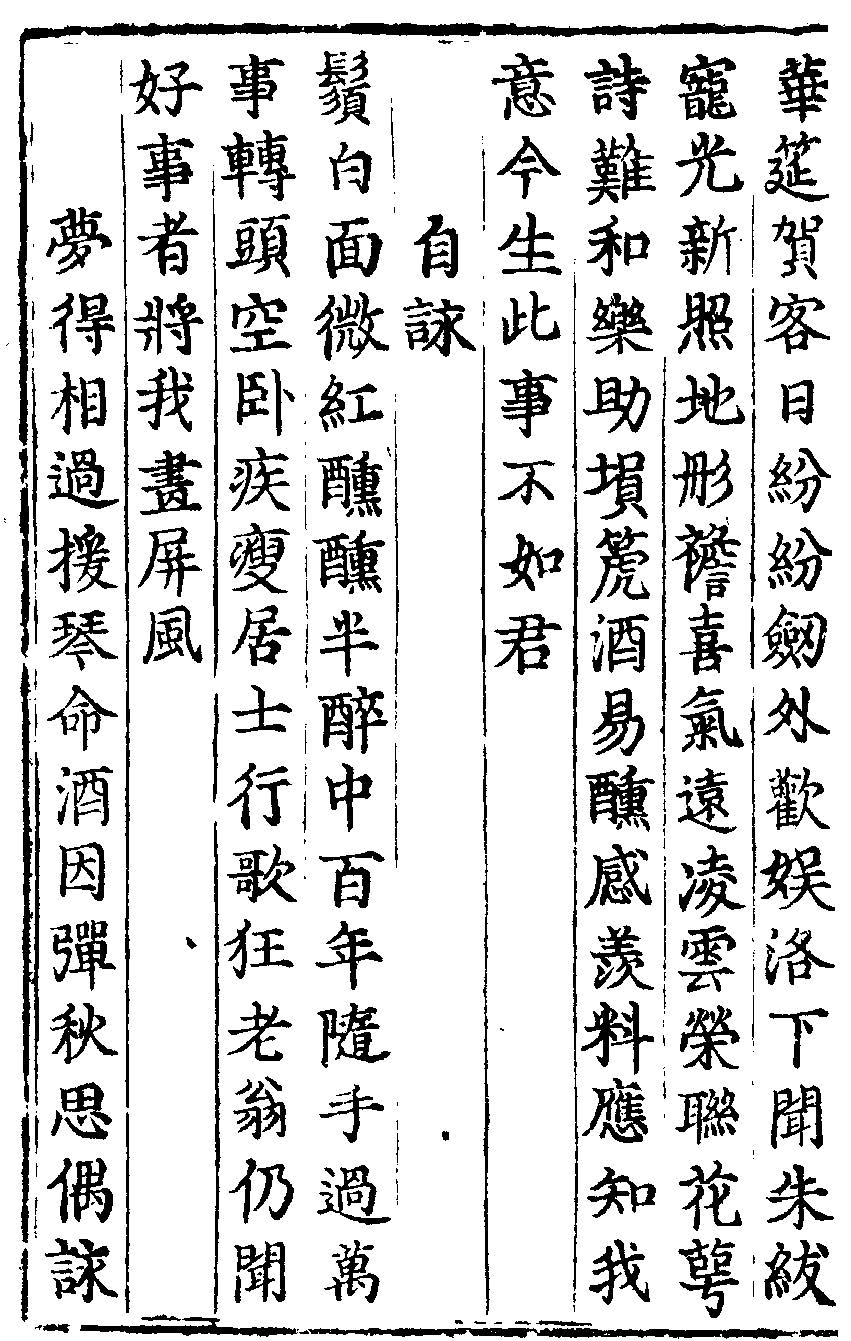 華筵賀客日紛紛劒外歡娱洛下聞朱紱
寵光新照地彤襜喜氣遠凌雲榮聯花蕚
詩難和樂助塤箎酒易醺感羨料應知我
意今生此事不如君
自詠
鬚白面微紅醺醺半醉中百年隨手過萬
事轉頭空卧疾瘦居士行歌狂老翁仍聞
好事者將我畫屏風
夢得相過援琴命酒因彈秋思偶詠